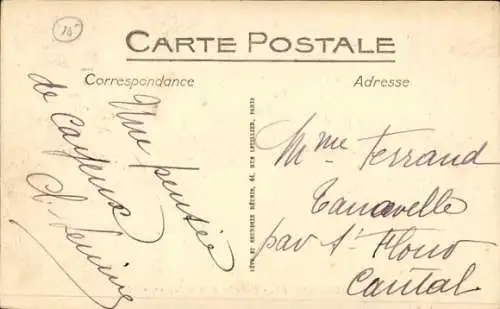 18
CARTE POSTALE
Correspondance
Adresse
Une pensée
de Cayeux
LÉVY ET NEURDEIN RÉUNIS, 44, RUE LETELLIER, PARIS
Mme Ferrand
Tanavelle
par St Flour
Cantal